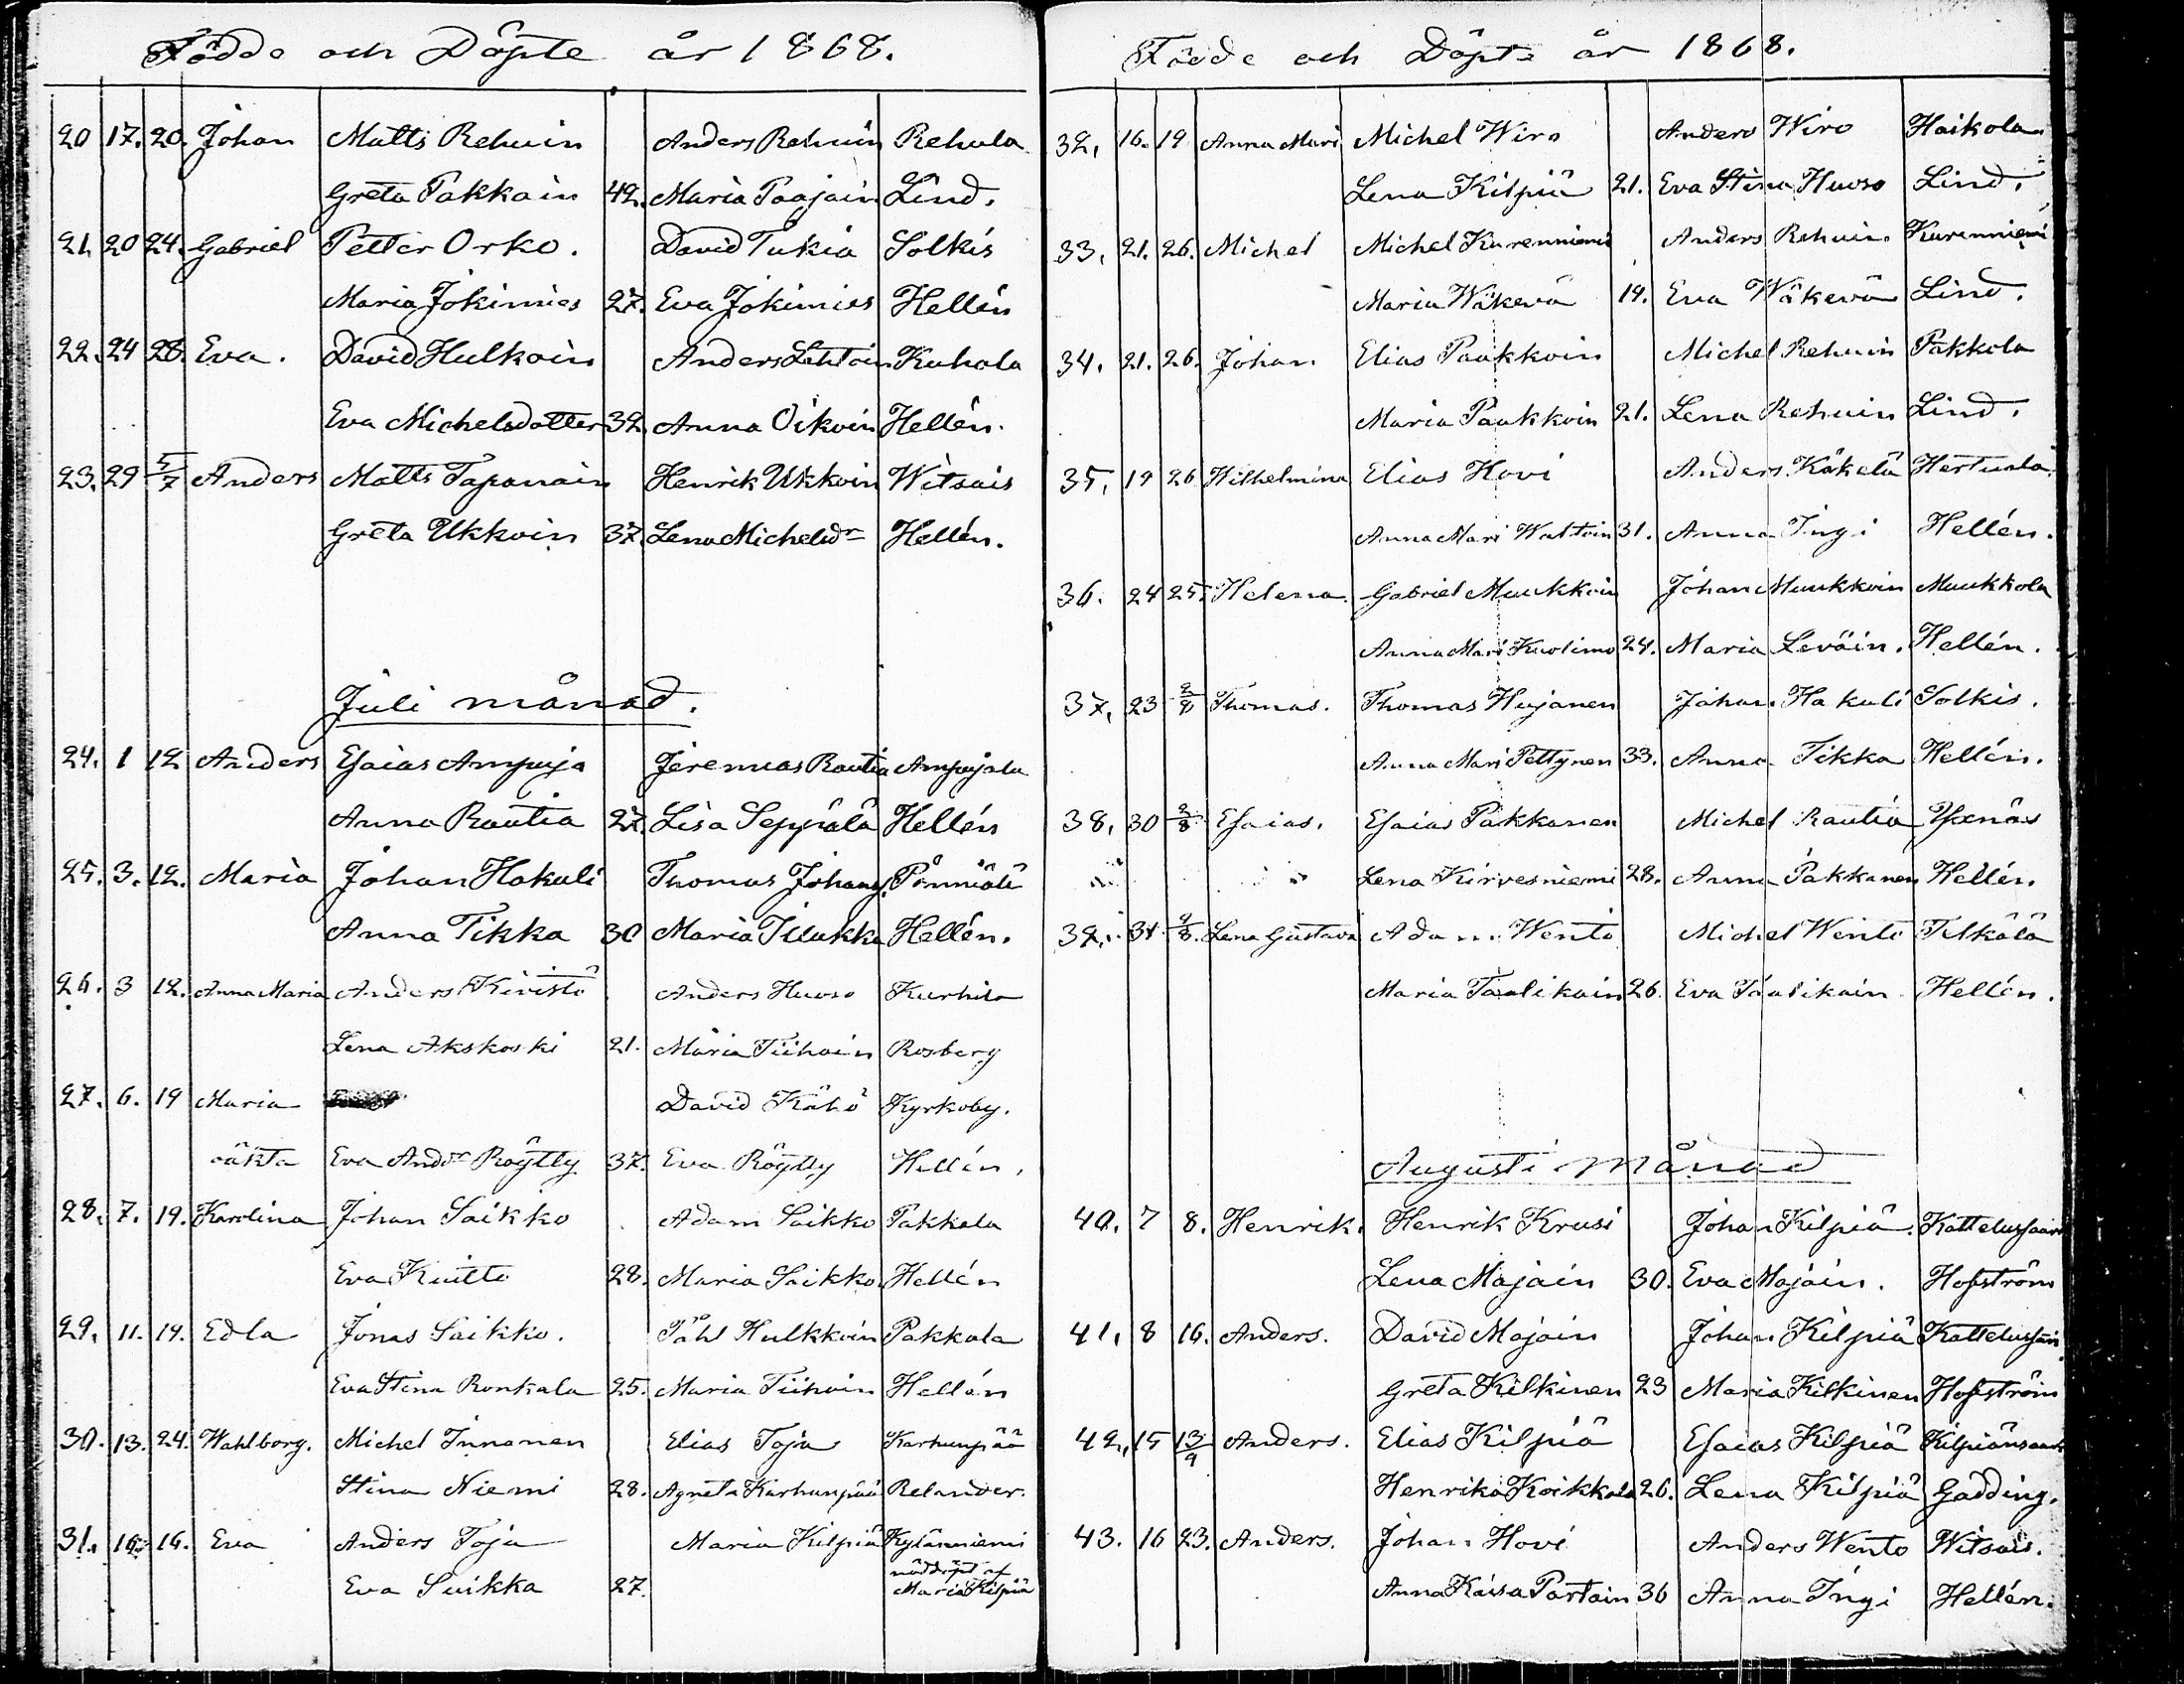 Födde och Döpte år 1868.
20 17. 20. Johan Matts Rehuin Anders Rehuin Rehula
Greta Pakkain 42. Maria Paajain Lind.
21. 20 24. Gabriel Petter Orko. David Tukia Solkis
Maria Jokimies 27. Eva Jokimies Hellén
22. 24 28. Eva. David Hulkoin Anders Lehtoin Kuhala
Eva Michelsdotter 32. Anna Oikoin Hellén.
23. 29 5/7 Anders Matts Tapanain Henrik Ukkoin Witsais
Greta Ukkoin 37. Lena Michelsdr Hellén.
Juli månad.
24. 1 12 Anders Esaias Ampuja Jeremias Rautia Ampujala
Anna Rautia 27. Lisa Seppälä Hellén
25. 3. 12. Maria Johan Hakuli Thomas Johans. Pönniälä
Anna Tikka 30 Maria Tilukka Hellén.
26. 3 12. Anna Maria Anders Kivistö Anders Huoso Kurhila
Lena Akskoski 21. Maria Tiihoin Rosberg
27. 6. 19 Maria David Kähö Kyrkoby.
oäkta Eva Andrs Röytty 37. Eva Röytty Hellén.
28. 7. 19. Karolina Johan Saikko Adam Saikko Pakkala
Eva Kuitto 28. Maria Saikko Hellén
29. 11. 19. Edla Jonas Saikko. Påhl Hulkkoin Pakkala
Eva Stina Ronkala 25. Maria Tiihoin Hellén
30. 13. 24. Wahlborg. Michel Innanen Elias Toja Karhunpää
Stina Niemi 28. Agneta Karhunpää Relander.
31. 16. Eva Anders Toja Maria Kilpiä Kylänniemi
Eva Suikka 27. nöddöpt af
Maria Kilpiä
Födde och Döpte år 1868.
32. 16. 19 Anna Mari Michel Wiro Anders Wiro Haikola
Lena Kilpiä 21. Eva Stina Huoso Lind.
33. 21. 26. Michel Michel Kurenniemi Anders Rehuin Kurenniemi
Maria Wäkevä 19. Eva Wäkevä Lind.
34. 21. 26. Johan Elias Paukkoin Michel Rehuin Pakkola
Maria Paukkoin 21. Lena Rehuin Lind.
35. 19 26 Wilhelmina Elias Hovi Anders Käkelä Hertuala
Anna Mari Waltoin 31. Anna Ingi Hellén.
36. 24 25. Helena. Gabriel Muukkoin Johan Muukkoin Muukkola
Anna Mari Kuolimo 24. Maria Leväin. Hellén.
37. 23 2/8 Thomas. Thomas Hujanen Johan Hakuli Solkis.
Anna Mari Pettynen 33. Anna Tikka Hellén.
38. 30 2/8 Esaias. Esaias Pakkanen Michel Rautia Yxnäs
Lena Kirvesniemi 28. Anna Pakkanen Hellén.
39. 31 Lena Gustava Adam Wento Michel Wento Telkälä
Maria Taalikain 26. Eva Taalikain Hellén.
Augusti Månad
40. 7 8. Henrik. Henrik Krusi Johan Kilpiä. Kattelussaari
Lena Majain 30. Eva Majain. Hofström
41. 8 16. Anders. David Majain Johan Kilpiä Kattelussaari
Greta Kilkinen 23 Maria Kilkinen Hofström
42. 15 13/9 Anders. Elias Kilpiä Esaias Kilpiä Kilpiänsaari
Henrika Koikkala 26. Lena Kilpiä Gadding.
43. 16 23. Anders. Johan Hovi Anders Wento Witsais.
Anna Kaisa Partain 36 Anna Ingi Hellén.